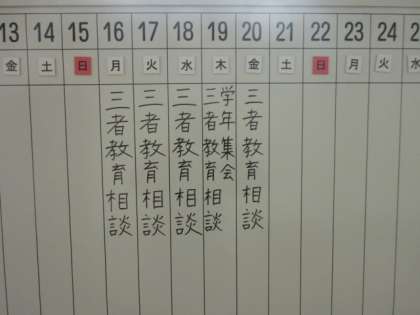 13 14 15 16 17 18 19 20 21 22 23 24
金 土 日 月 火 水 木 金 土 日 月 火 水
三者教育相談
三者教育相談
三者教育相談
学年集会
三者教育相談
三者教育相談